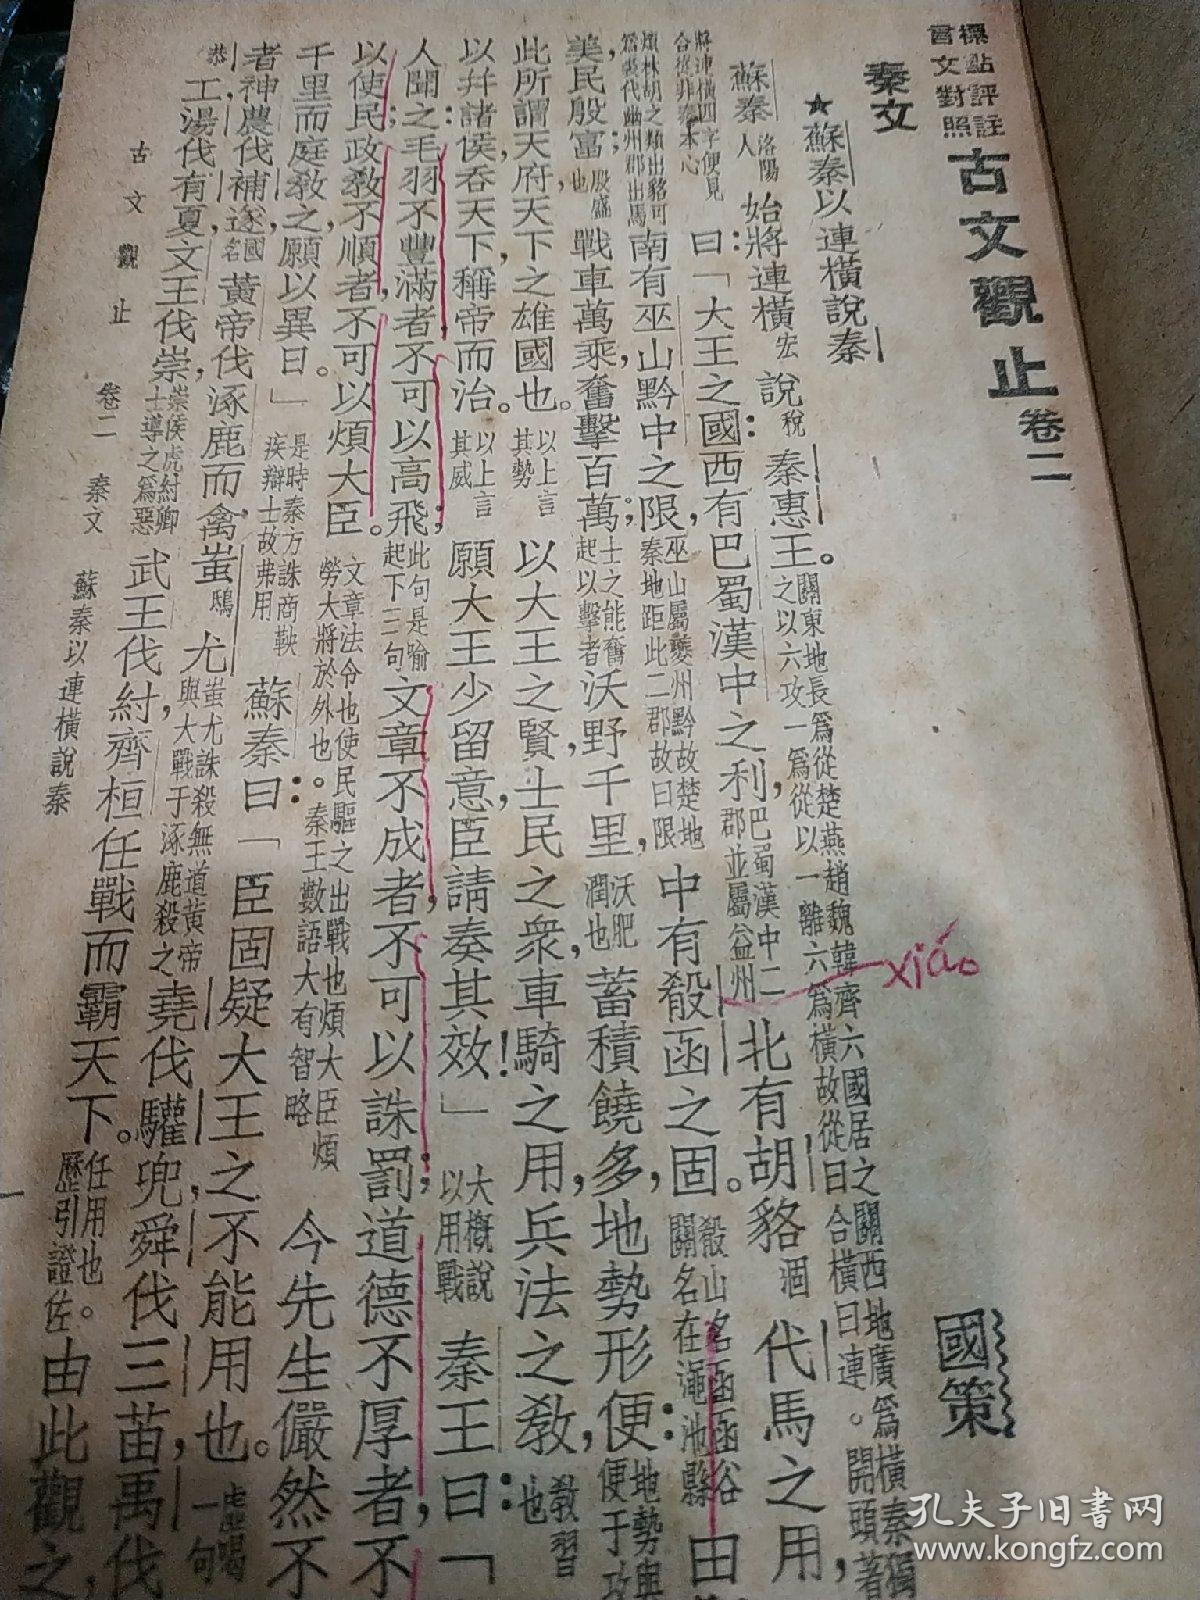 標點評註
言文對照
古文觀止卷二
秦文
★蘇秦以連橫說秦
國策
蘇秦洛陽人始將連橫宏說稅秦惠王。關東地長爲從楚燕趙魏韓齊六國居之關西地廣爲橫秦獨
之以六攻一爲從以一離六爲橫故從曰合橫曰連。開頭著
將連橫四字便見合從非秦本心曰：「大王之國：西有巴蜀漢中之利，巴蜀漢中二郡並屬益州北有胡貉涸代馬之用，
煩林胡之類出貉可爲裘代幽州郡出馬南有巫山黔中之限，巫山屬夔州黔故楚地秦地距此二郡故曰限中有殽函之固。殽山名函函谷關名在澠池縣田
美民殷富；殷盛也戰車萬乘，奮擊百萬；士之能奮起以擊者沃野千里，沃肥潤也蓄積饒多，地勢形便：地勢與便于攻
此所謂天府，天下之雄國也。以上言其勢以大王之賢，士民之衆，車騎之用，兵法之教，教習也
以幷諸侯，吞天下，稱帝而治。以上言其威願大王少留意，臣請奏其效！」大概說以用戰秦王曰：「
人聞之：毛羽不豐滿者，不可以高飛；此句是喻起下三句文章不成者，不可以誅罰；道德不厚者，不
以使民；政教不順者，不可以煩大臣。文章法令也使民驅之出戰也煩大臣煩勞大將於外也。秦王數語大有智略今先生儼然不
千里而庭教之，願以異日。」是時秦方誅商鞅疾辯士故弗用蘇秦曰：「臣固疑大王之不能用也。虛喝一句
者神農伐補遂，國名黃帝伐涿鹿而禽蚩鴟尤，蚩尤誅殺無道黃帝與大戰于涿鹿殺之堯伐驩兜，舜伐三苗，禹伐
恭工，湯伐有夏，文王伐崇，崇侯虎紂卿士導之爲惡武王伐紂，齊桓任戰而霸天下。任用也。歷引證佐。由此觀之，
古文觀止 卷二 秦文 蘇秦以連橫說秦
xiáo
孔夫子旧书网
www.kongfz.com